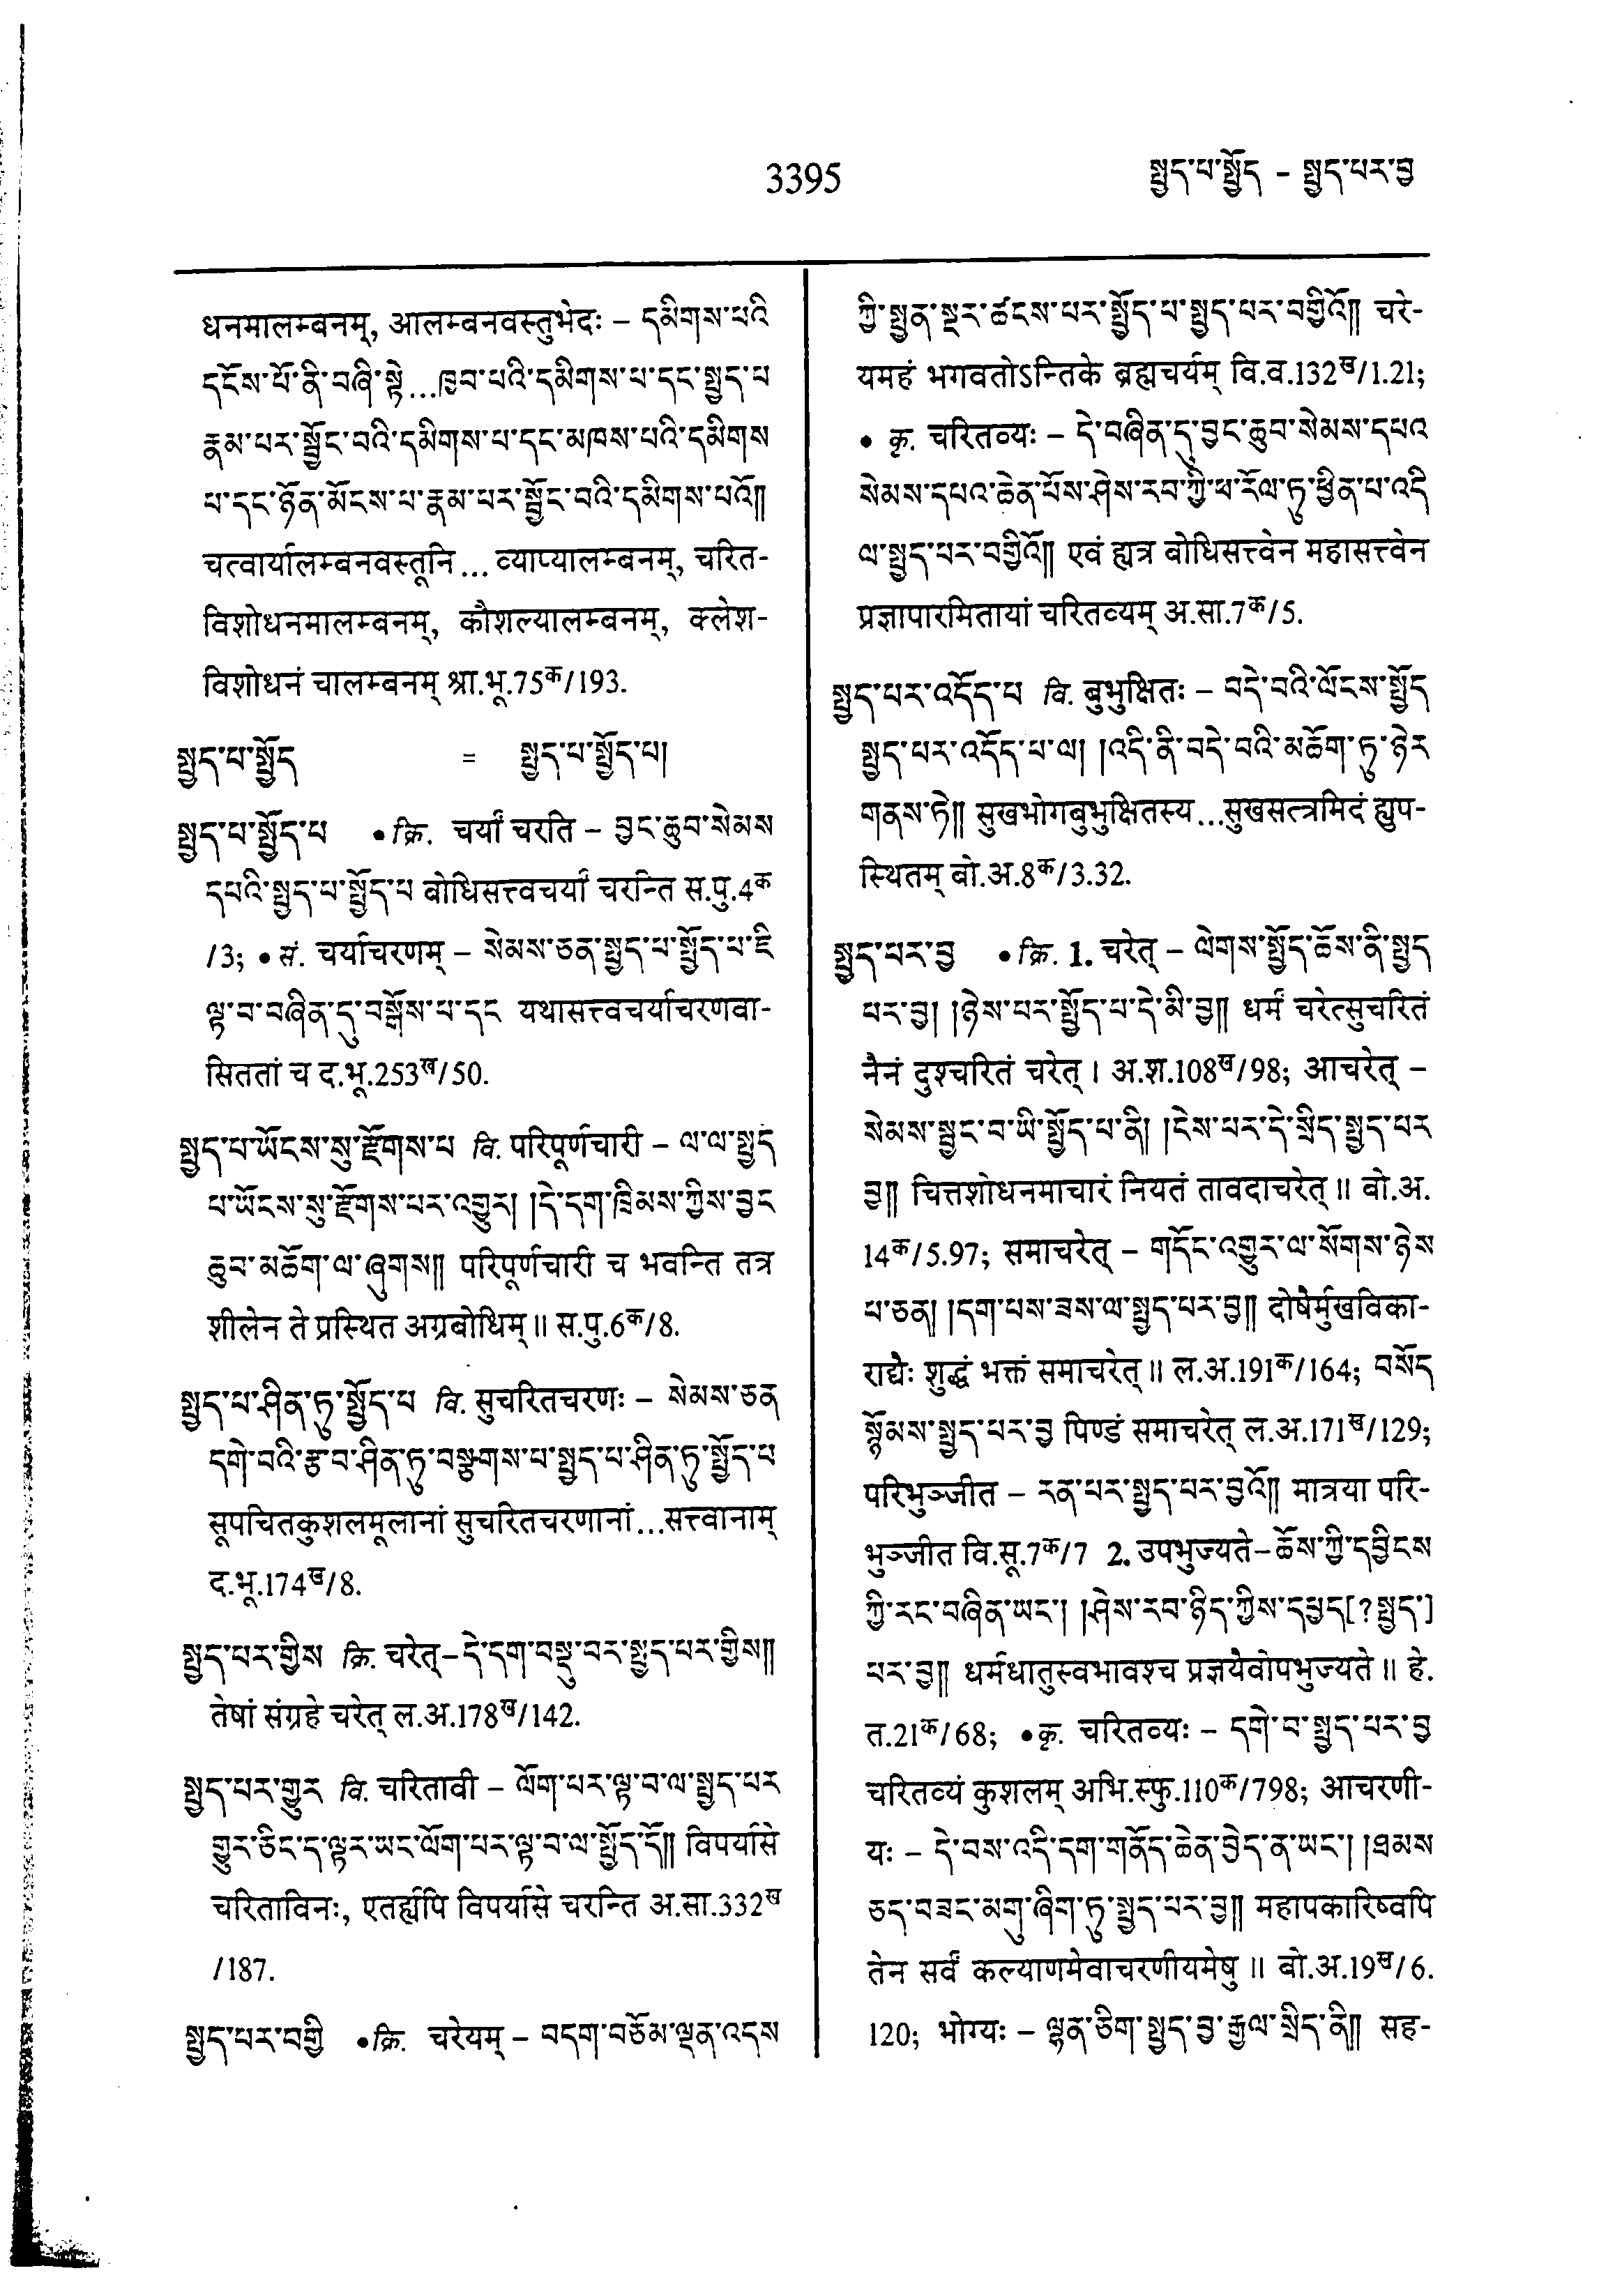 3395
སྤྱད་པ་སྤྱོད – སྤྱད་པར་བྱ
धनमालम्बनम्, आलम्बनवस्तुभेदः – དམིགས་པའི
དངོས་པོ་ནི་བཞི་སྟེ...ཁྱབ་པའི་དམིགས་པ་དང་སྤྱད་པ
རྣམ་པར་སྦྱོང་བའི་དམིགས་པ་དང་མཁས་པའི་དམིགས
པ་དང་ཉོན་མོངས་པ་རྣམ་པར་སྦྱོང་བའི་དམིགས་པའོ༎
चत्वार्यालम्बनवस्तूनि... व्याप्यालम्बनम्, चरित-
विशोधनमालम्बनम्, कौशल्यालम्बनम्, क्लेश-
विशोधनं चालम्बनम् श्रा.भू.75क/193.
སྤྱད་པ་སྤྱོད = སྤྱད་པ་སྤྱོད་པ།
སྤྱད་པ་སྤྱོད་པ •क्रि. चर्यां चरति – བྱང་ཆུབ་སེམས
དཔའི་སྤྱད་པ་སྤྱོད་པ बोधिसत्त्वचर्यां चरन्ति स.पु.4क
/3; • सं. चर्याचरणम् – སེམས་ཅན་སྤྱད་པ་སྤྱོད་པ་ཇི
ལྟ་བ་བཞིན་དུ་བསྒོས་པ་དང यथासत्त्वचर्याचरणवा-
सिततां च द.भू.253ख/50.
སྤྱད་པ་ཡོངས་སུ་རྫོགས་པ वि. परिपूर्णचारी – ལ་ལ་སྤྱད
པ་ཡོངས་སུ་རྫོགས་པར་འགྱུར། །དེ་དག་ཁྲིམས་ཀྱིས་བྱང
ཆུབ་མཆོག་ལ་ཞུགས༎ परिपूर्णचारी च भवन्ति तत्र
शीलेन ते प्रस्थित अग्रबोधिम् ॥ स.पु.6क/8.
སྤྱད་པ་ཤིན་ཏུ་སྤྱོད་པ वि. सुचरितचरणः – སེམས་ཅན
དགེ་བའི་རྩ་བ་ཤིན་ཏུ་བསྩགས་པ་སྤྱད་པ་ཤིན་ཏུ་སྤྱོད་པ
सूपचितकुशलमूलानां सुचरितचरणानां...सत्त्वानाम्
द.भू.174ख/8.
སྤྱད་པར་གྱིས क्रि. चरेत्–དེ་དག་བསྡུ་བར་སྤྱད་པར་གྱིས༎
तेषां संग्रहे चरेत् ल.अ.178ख/142.
སྤྱད་པར་གྱུར वि. चरितावी – ལོག་པར་ལྟ་བ་ལ་སྤྱད་པར
གྱུར་ཅིང་ད་ལྟར་ཡང་ལོག་པར་ལྟ་བ་ལ་སྤྱོད་དོ༎ विपर्यासे
चरिताविनः, एतर्ह्यपि विपर्यासे चरन्ति अ.सा.332ख
/187.
སྤྱད་པར་བགྱི •क्रि. चरेयम् – བདག་བཅོམ་ལྡན་འདས
ཀྱི་སྤྱན་སྔར་ཚངས་པར་སྤྱོད་པ་སྤྱད་པར་བགྱིའོ༎ चरे-
यमहं भगवतोऽन्तिके ब्रह्मचर्यम् वि.व.132ख/1.21;
• कृ. चरितव्यः – དེ་བཞིན་དུ་བྱང་ཆུབ་སེམས་དཔའ
སེམས་དཔའ་ཆེན་པོས་ཤེས་རབ་ཀྱི་ཕ་རོལ་ཏུ་ཕྱིན་པ་འདི
ལ་སྤྱད་པར་བགྱིའོ༎ एवं ह्यत्र बोधिसत्त्वेन महासत्त्वेन
प्रज्ञापारमितायां चरितव्यम् अ.सा.7क/5.
སྤྱད་པར་འདོད་པ वि. बुभुक्षितः – བདེ་བའི་ལོངས་སྤྱོད
སྤྱད་པར་འདོད་པ་ལ། །འདི་ནི་བདེ་བའི་མཆོག་ཏུ་ཉེར
གནས་ཏེ༎ सुखभोगबुभुक्षितस्य...सुखसत्त्रमिदं ह्युप-
स्थितम् बो.अ.8क/3.32.
སྤྱད་པར་བྱ •क्रि. 1. चरेत् – ལེགས་སྤྱོད་ཆོས་ནི་སྤྱད
པར་བྱ། །ཉེས་པར་སྤྱོད་པ་དེ་མི་བྱ༎ धर्मं चरेत्सुचरितं
नैनं दुश्चरितं चरेत् । अ.श.108ख/98; आचरेत् –
སེམས་སྦྱང་བ་ཡི་སྤྱོད་པ་ནི། །ངེས་པར་དེ་སྲིད་སྤྱད་པར
བྱ༎ चित्तशोधनमाचारं नियतं तावदाचरेत् ॥ बो.अ.
14क/5.97; समाचरेत् – གདོང་འགྱུར་ལ་སོགས་ཉེས
པ་ཅན། །དག་པས་ཟས་ལ་སྤྱད་པར་བྱ༎ दोषैर्मुखविका-
राद्यैः शुद्धं भक्तं समाचरेत् ॥ ल.अ.191क/164; བསོད
སྙོམས་སྤྱད་པར་བྱ पिण्डं समाचरेत् ल.अ.171ख/129;
परिभुञ्जीत – རན་པར་སྤྱད་པར་བྱའོ༎ मात्रया परि-
भुञ्जीत वि.सू.7क/7 2. उपभुज्यते–ཆོས་ཀྱི་དབྱིངས
ཀྱི་རང་བཞིན་ཡང་། །ཤེས་རབ་ཉིད་ཀྱིས་དཔྱད[?སྤྱད་]
པར་བྱ༎ धर्मधातुस्वभावश्च प्रज्ञयैवोपभुज्यते ॥ हे.
त.21क/68; •कृ. चरितव्यः – དགེ་བ་སྤྱད་པར་བྱ
चरितव्यं कुशलम् अभि.स्फु.110क/798; आचरणी-
यः – དེ་བས་འདི་དག་གནོད་ཆེན་བྱེད་ན་ཡང་། །ཐམས
ཅད་བཟང་མགུ་ཞིག་ཏུ་སྤྱད་པར་བྱ༎ महापकारिष्वपि
तेन सर्वं कल्याणमेवाचरणीयमेषु ॥ बो.अ.19ख/6.
120; भोग्यः – ལྷན་ཅིག་སྤྱད་བྱ་རྒྱལ་སྲིད་ནི༎ सह-